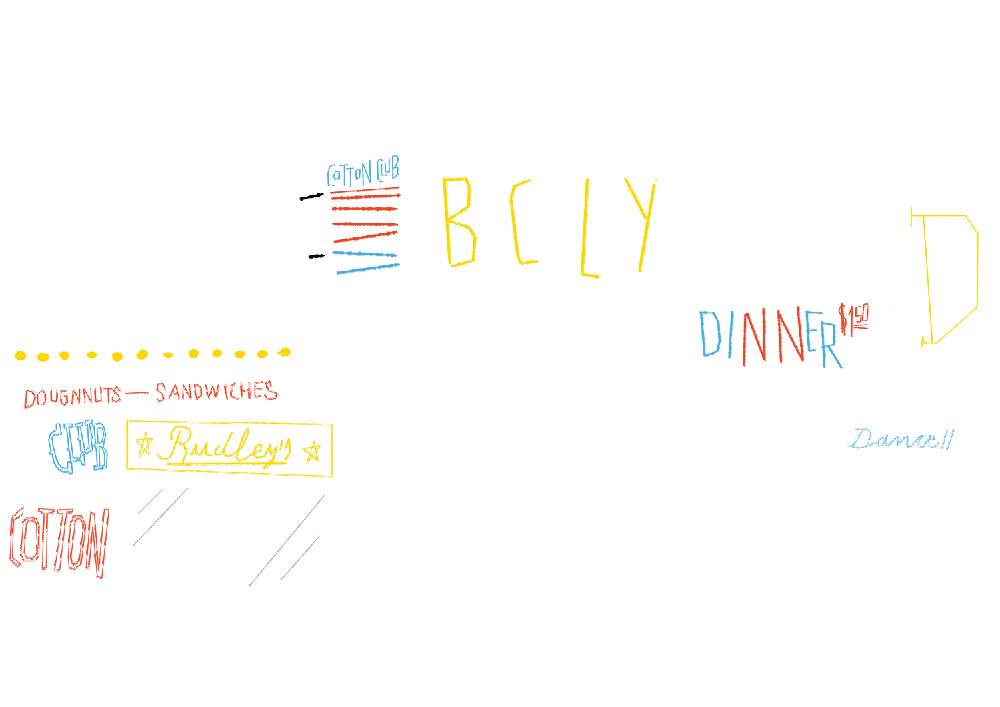 COTTON CLUB
B C L Y
D
DINNER $1.50
DOUGNNUTS — SANDWICHES
CLUB
Rudley's
Dance!!
COTTON